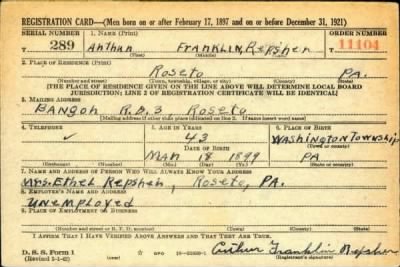 REGISTRATION CARD—(Men born on or after February 17, 1897 and on or before December 31, 1921)
SERIAL NUMBER 1. NAME (Print) ORDER NUMBER
T 289 Arthur Franklin Repsher T 11104
(First) (Middle) (Last)
2. PLACE OF RESIDENCE (Print)
Roseto PA.
(Number and street) (Town, township, village, or city) (County) (State)
[THE PLACE OF RESIDENCE GIVEN ON THE LINE ABOVE WILL DETERMINE LOCAL BOARD
JURISDICTION; LINE 2 OF REGISTRATION CERTIFICATE WILL BE IDENTICAL]
3. MAILING ADDRESS
BANGOR R.D.3 Roseto
[Mailing address if other than place indicated on line 2. If same insert word same]
4. TELEPHONE 5. AGE IN YEARS 6. PLACE OF BIRTH
43 Washington Township
DATE OF BIRTH (Town or county)
MAR 18 1899 PA
(Exchange) (Number) (Mo.) (Day) (Yr.) (State or country)
7. NAME AND ADDRESS OF PERSON WHO WILL ALWAYS KNOW YOUR ADDRESS
Mrs. Ethel Repsher, Roseto, PA.
8. EMPLOYER'S NAME AND ADDRESS
Unemployed
9. PLACE OF EMPLOYMENT OR BUSINESS
(Number and street or R. F. D. number) (Town) (County) (State)
I AFFIRM THAT I HAVE VERIFIED ABOVE ANSWERS AND THAT THEY ARE TRUE.
D. S. S. Form 1 GPO Arthur Franklin Repsher